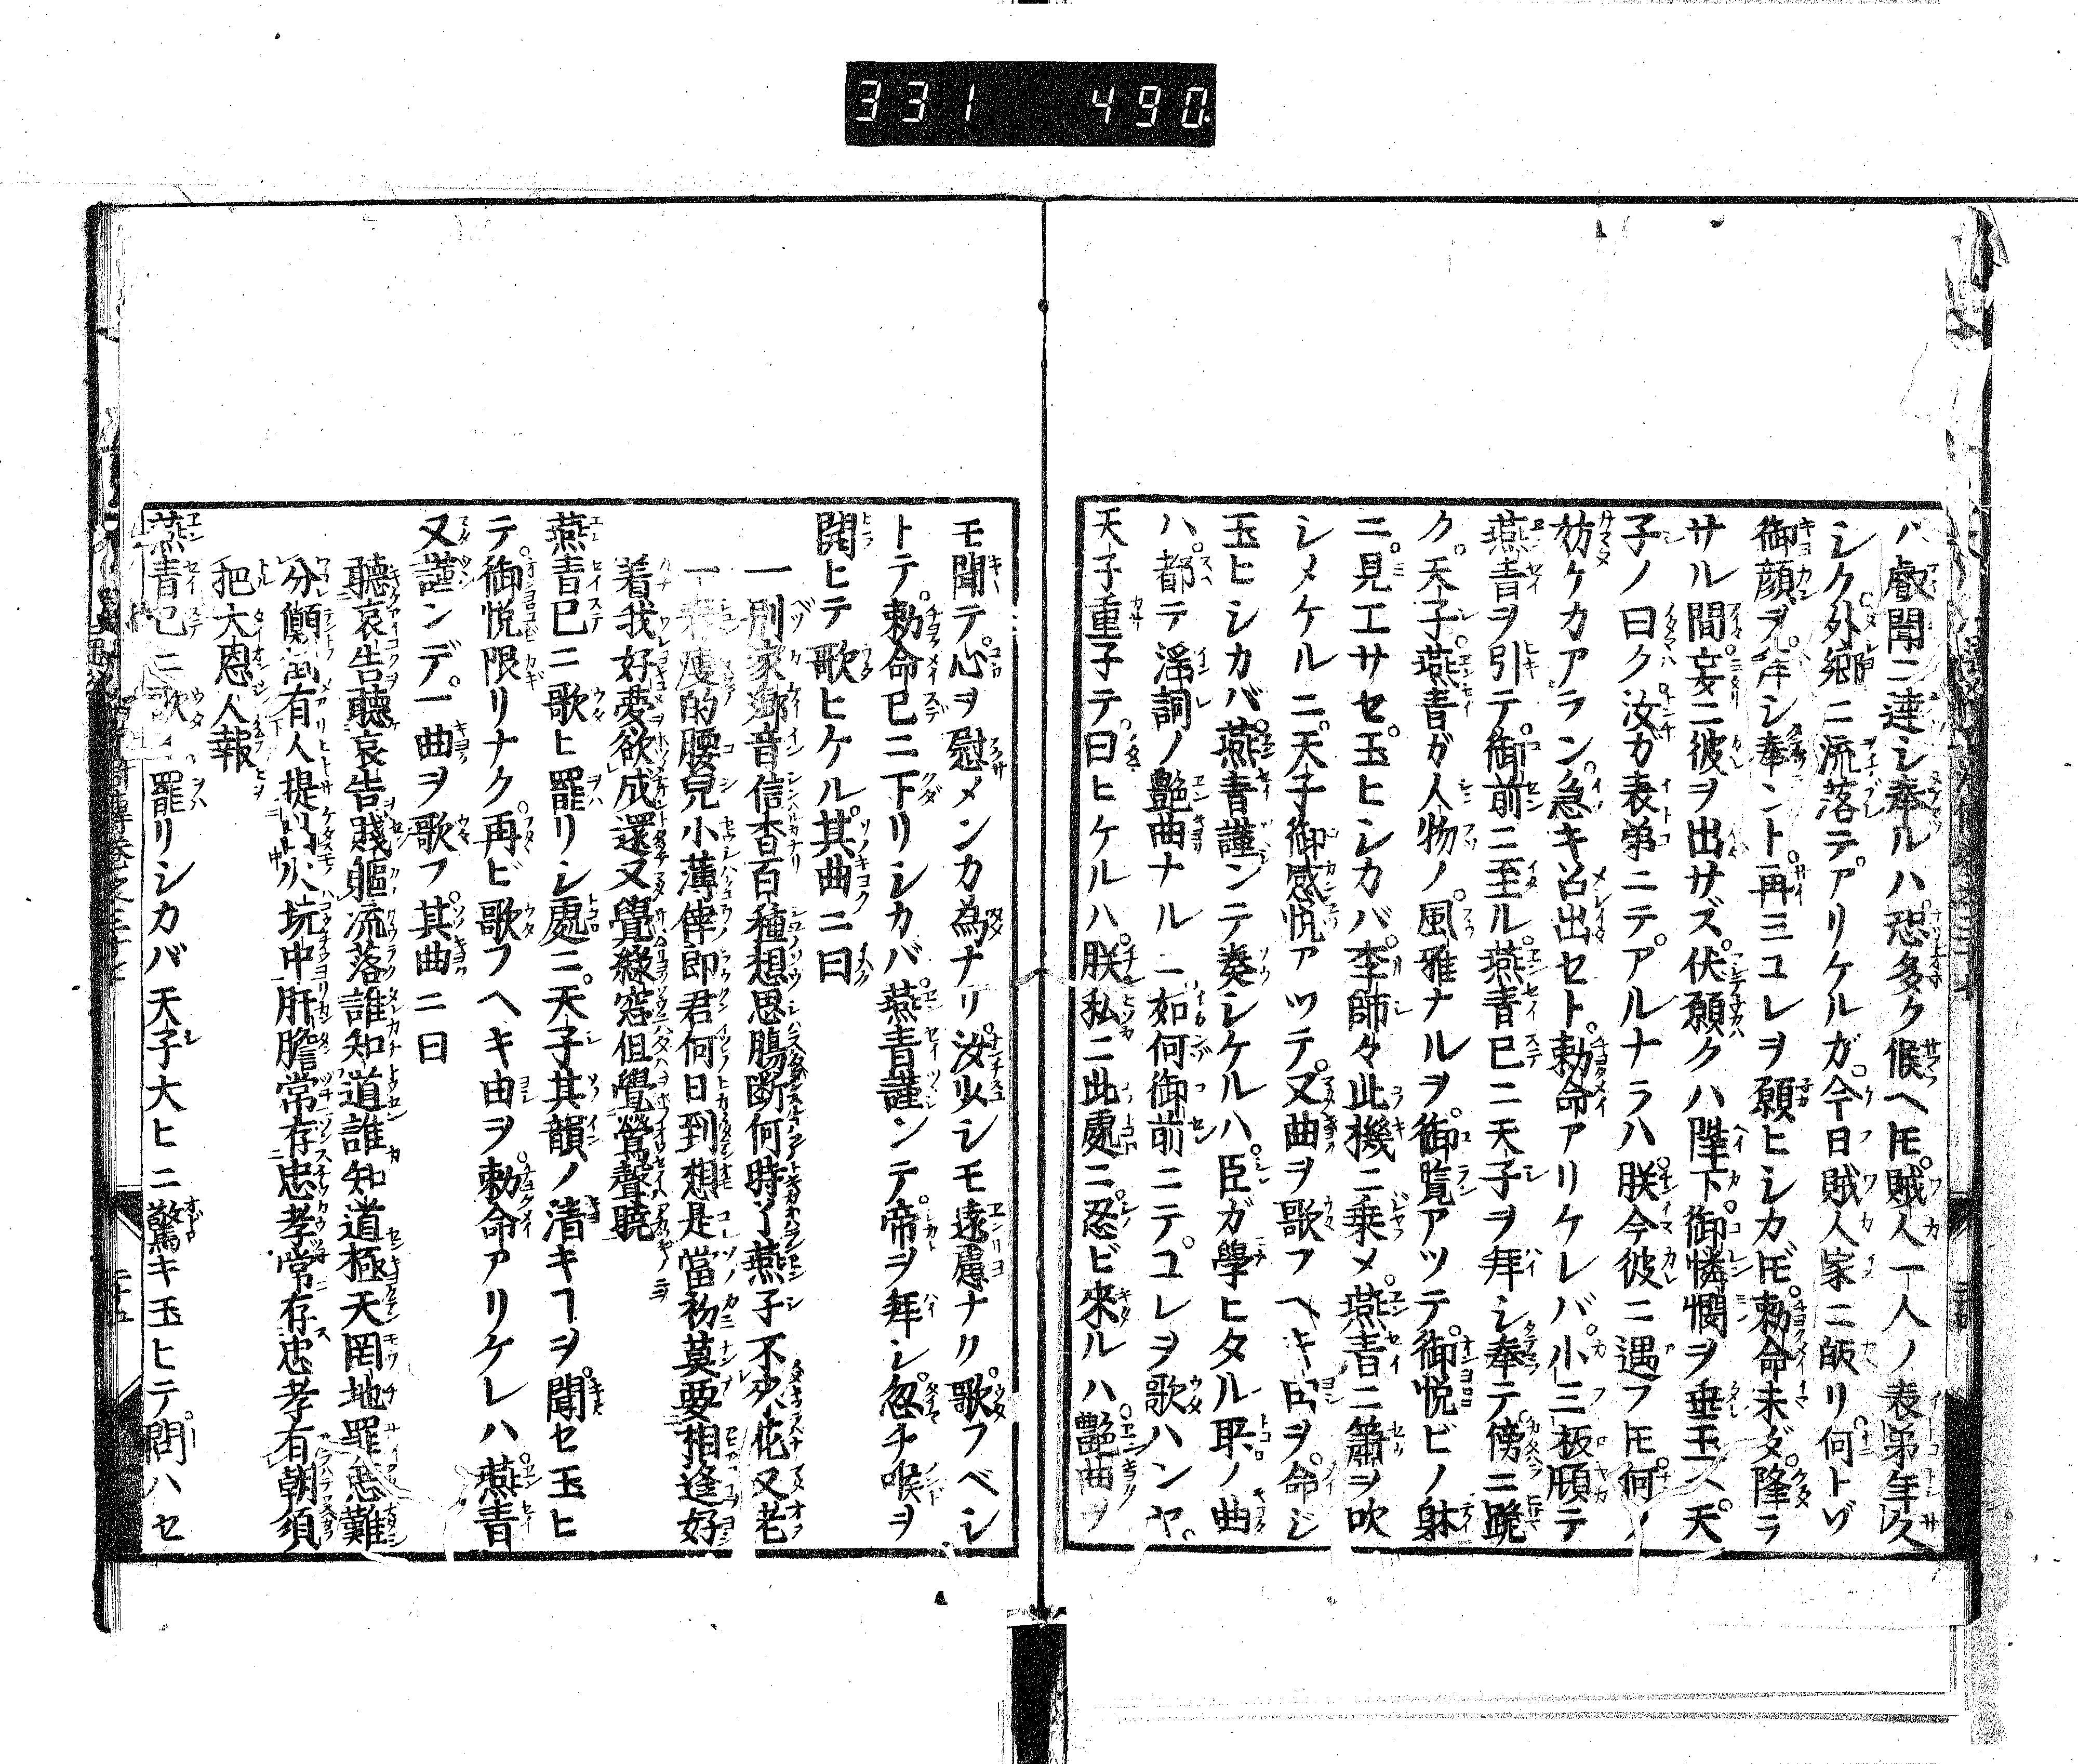 331 490
ハ叡聞ニ達シ奉ルハ恐多ク候ヘ𪜈賊人一人ノ表弟年久
シク外郷ニ流落テアリケルガ今日賊人家ニ皈リ何トゾ
御顔ヲ拜シ奉ント再三コレヲ願ヒシカ𪜈勅命未ダ降ラ
サル間妄ニ彼ヲ出サズ伏願クハ陛下御憐憫ヲ垂玉ヘ天
子ノ曰ク汝カ表弟ニテアルナラハ朕今彼ニ遇フ𪜈何ノ
妨ケカアラン急キ召出セト勅命アリケレバ小三板頋テ
燕青ヲ引テ御前ニ至ル燕青已ニ天子ヲ拜シ奉テ傍ニ跪
ク天子燕青ガ人物ノ風雅ナルヲ御覧アツテ御悦ビノ躰
ニ見エサセ玉ヒシカバ李師々此機ニ乗メ燕青ニ簫ヲ吹
シメケルニ天子御感悦アツテ又曲ヲ歌フヘキ由ヲ命ジ
玉ヒシカバ燕青謹ンテ奏シケルハ臣ガ學ヒタル𠩄ノ曲
ハ都テ淫詞ノ艶曲ナルニ如何御前ニテコレヲ歌ハンヤ
天子重子テ曰ヒケルハ朕私ニ此處ニ忍ビ來ルハ艶曲ヲ
モ聞テ心ヲ慰メンカ為ナリ汝必シモ遠慮ナク歌フベシ
トテ勅命已ニ下リシカバ燕青謹ンテ帝ヲ拜シ忽チ喉ヲ
開ヒテ歌ヒケル其曲ニ曰
一別家郷音信杳百種想思腸断何時了燕子不來花又老
一春痩的腰兒小薄倖郎君何日到想是當初莫要相逢好
着我好夢欲成還又覺緑窓但覺鶯聲曉
燕青已ニ歌ヒ罷リシ處ニ天子其韻ノ清キヿヲ聞セ玉ヒ
テ御悦限リナク再ビ歌フヘキ由ヲ勅命アリケレハ燕青
又謹ンデ一曲ヲ歌フ其曲ニ曰
聽哀告聽哀告賤軀流落誰知道誰知道極天罔地罪惡難
分顚倒有人提出火坑中肝膽常存忠孝常存忠孝有朝須
把大恩人報
燕青已ニ歌ヒ罷リシカバ天子大ヒニ驚キ玉ヒテ問ハセ